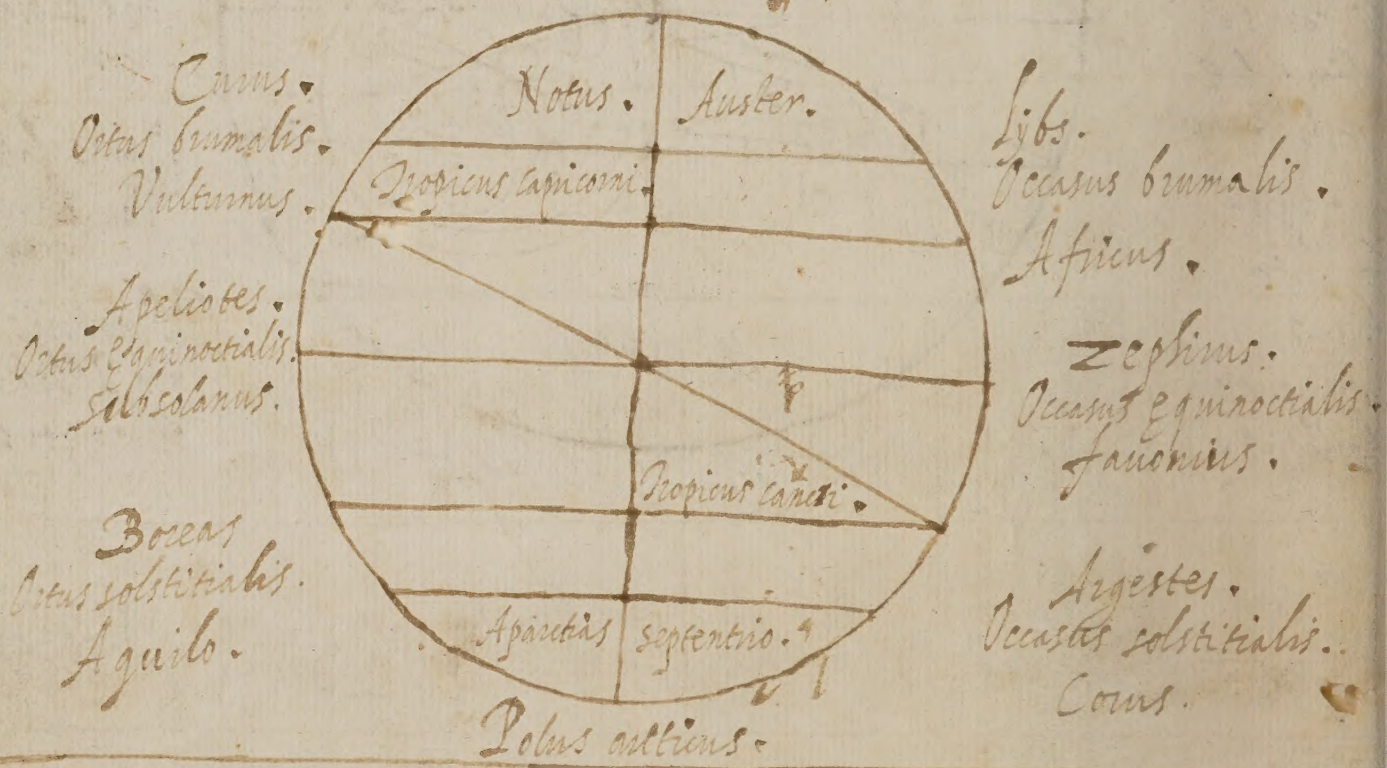 Eurus.
Ortus brumalis.
Vulturnus.
Apeliotes.
Ortus ęquinoctialis.
Subsolanus.
Boreas
Ortus solstitialis.
Aquilo.
Notus. Auster.
Tropicus capricorni.
Tropicus cancri.
Aparctias septentrio.
Polus arcticus.
Lybs.
Occasus brumalis.
Africus.
Zephirus.
Occasus ęquinoctialis.
favonius.
Argestes.
Occasus solstitialis.
Corus.